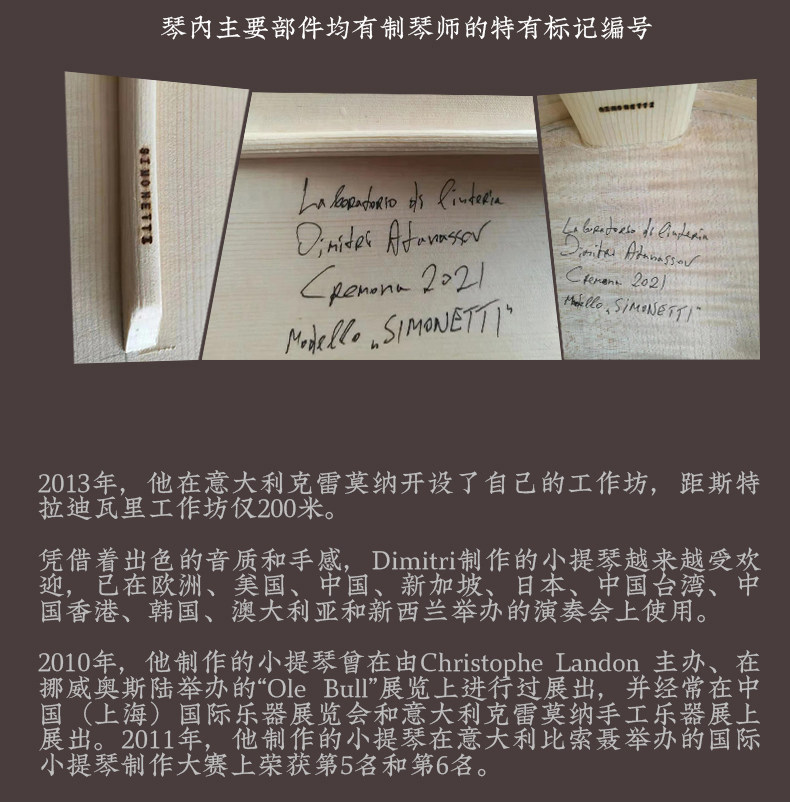 琴内主要部件均有制琴师的特有标记编号
SIMONETTI
Laboratorio di liuteria
Dimitri Atanassov
Cremona 2021
Modello „SIMONETTI"
SIMONETTI
Laboratorio di liuteria
Dimitri Atanassov
Cremona 2021
Modello „SIMONETTI"
2013年，他在意大利克雷莫纳开设了自己的工作坊，距斯特
拉迪瓦里工作坊仅200米。
凭借着出色的音质和手感，Dimitri制作的小提琴越来越受欢
迎，已在欧洲、美国、中国、新加坡、日本、中国台湾、中
国香港、韩国、澳大利亚和新西兰举办的演奏会上使用。
2010年，他制作的小提琴曾在由Christophe Landon 主办、在
挪威奥斯陆举办的“Ole Bull”展览上进行过展出，并经常在中
国（上海）国际乐器展览会和意大利克雷莫纳手工乐器展上
展出。2011年，他制作的小提琴在意大利比索聂举办的国际
小提琴制作大赛上荣获第5名和第6名。